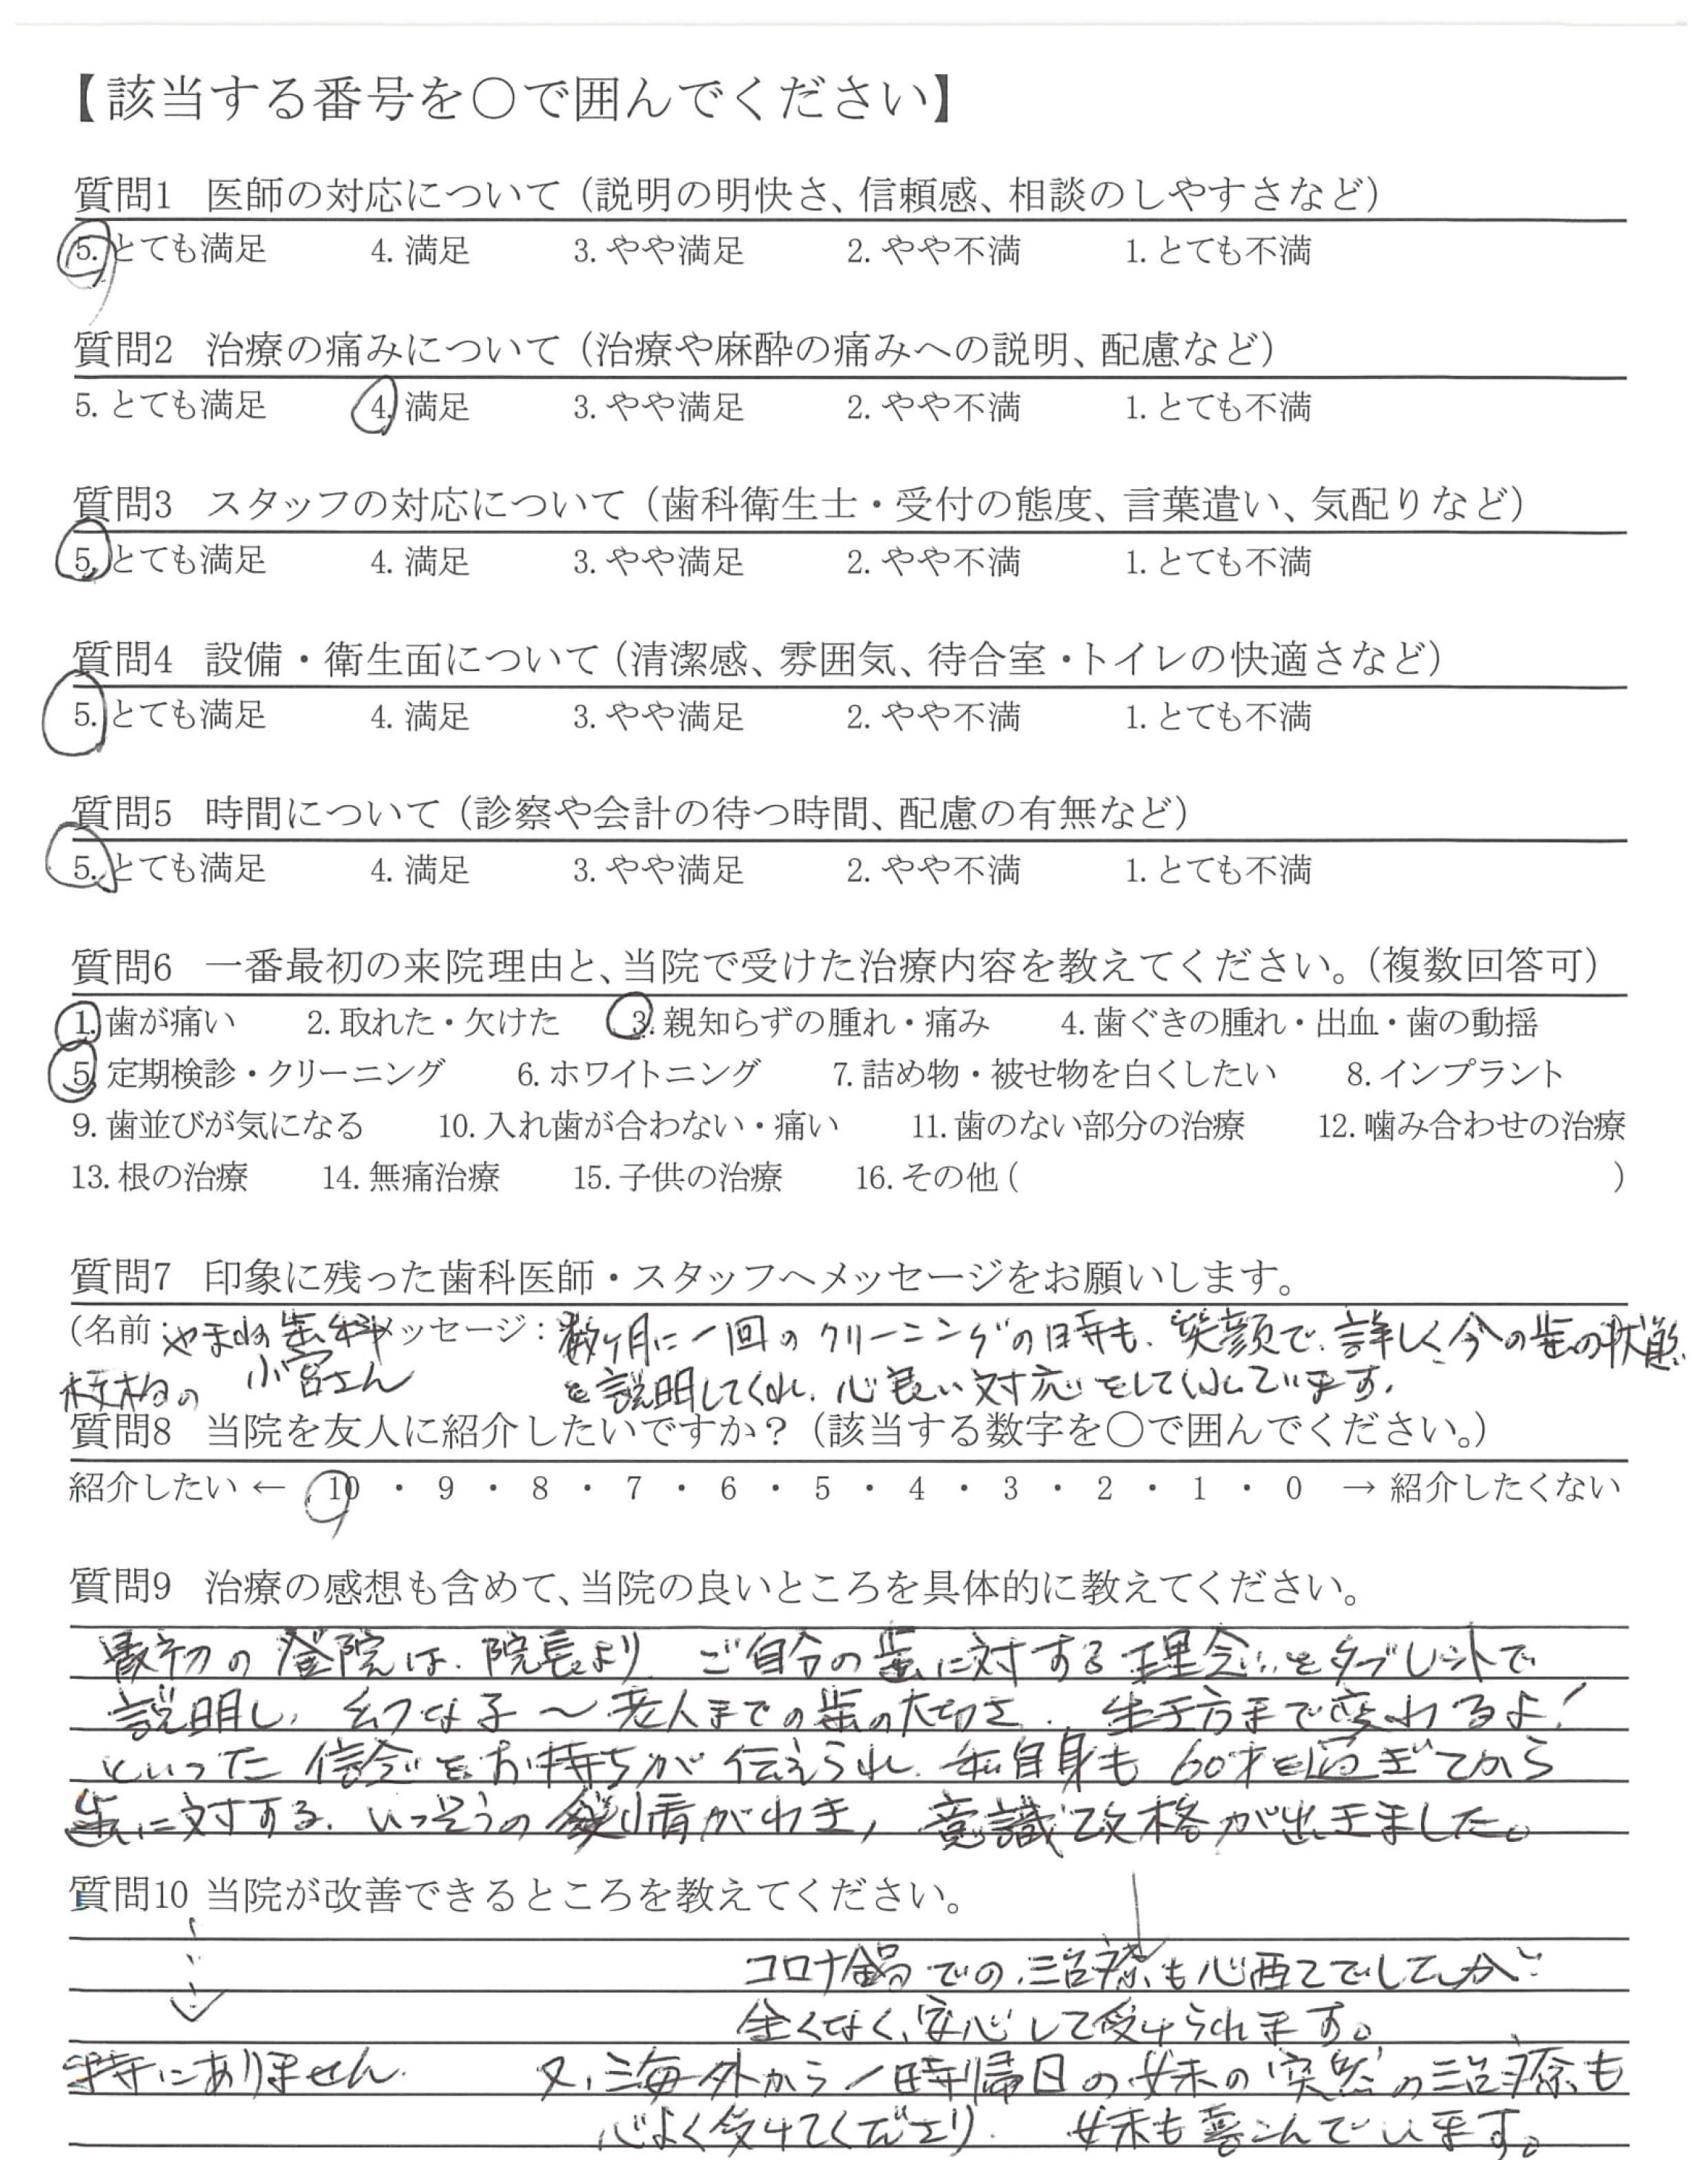 【該当する番号を○で囲んでください】
質問1 医師の対応について（説明の明快さ、信頼感、相談のしやすさなど）
5. とても満足 4. 満足 3. やや満足 2. やや不満 1. とても不満
質問2 治療の痛みについて（治療や麻酔の痛みへの説明、配慮など）
5. とても満足 4. 満足 3. やや満足 2. やや不満 1. とても不満
質問3 スタッフの対応について（歯科衛生士・受付の態度、言葉遣い、気配りなど）
5. とても満足 4. 満足 3. やや満足 2. やや不満 1. とても不満
質問4 設備・衛生面について（清潔感、雰囲気、待合室・トイレの快適さなど）
5. とても満足 4. 満足 3. やや満足 2. やや不満 1. とても不満
質問5 時間について（診察や会計の待つ時間、配慮の有無など）
5. とても満足 4. 満足 3. やや満足 2. やや不満 1. とても不満
質問6 一番最初の来院理由と、当院で受けた治療内容を教えてください。（複数回答可）
1. 歯が痛い 2. 取れた・欠けた 3. 親知らずの腫れ・痛み 4. 歯ぐきの腫れ・出血・歯の動揺
5. 定期検診・クリーニング 6. ホワイトニング 7. 詰め物・被せ物を白くしたい 8. インプラント
9. 歯並びが気になる 10. 入れ歯が合わない・痛い 11. 歯のない部分の治療 12. 噛み合わせの治療
13. 根の治療 14. 無痛治療 15. 子供の治療 16. その他 ( )
質問7 印象に残った歯科医師・スタッフへメッセージをお願いします。
（名前：やまね歯科 メッセージ：数ヶ月に一回のクリーニングの時も、笑顔で、詳しく今の歯の状態
小宮さん を説明してくれ、心良い対応をしてくれています。
質問8 当院を友人に紹介したいですか？（該当する数字を○で囲んでください。）
紹介したい ← 10 ・ 9 ・ 8 ・ 7 ・ 6 ・ 5 ・ 4 ・ 3 ・ 2 ・ 1 ・ 0 → 紹介したくない
質問9 治療の感想も含めて、当院の良いところを具体的に教えてください。
最初の登院は、院長より ご自分の歯に対する理念をタブレットで
説明し、幼な子〜老人までの歯の大切さ、生き方まで変わるよ！
といった信念をお持ちが伝えられ、私自身も60才を過ぎてから
歯に対する、いっそうの愛情がわき、意識改格が出きました。
質問10 当院が改善できるところを教えてください。
コロナ鍋での治療も心配でしたが
全くなく、安心して受けられます。
特にありません 又、海外から一時帰日の妹の突然の治療も
心よく受けてくださり 妹も喜こんでいます。